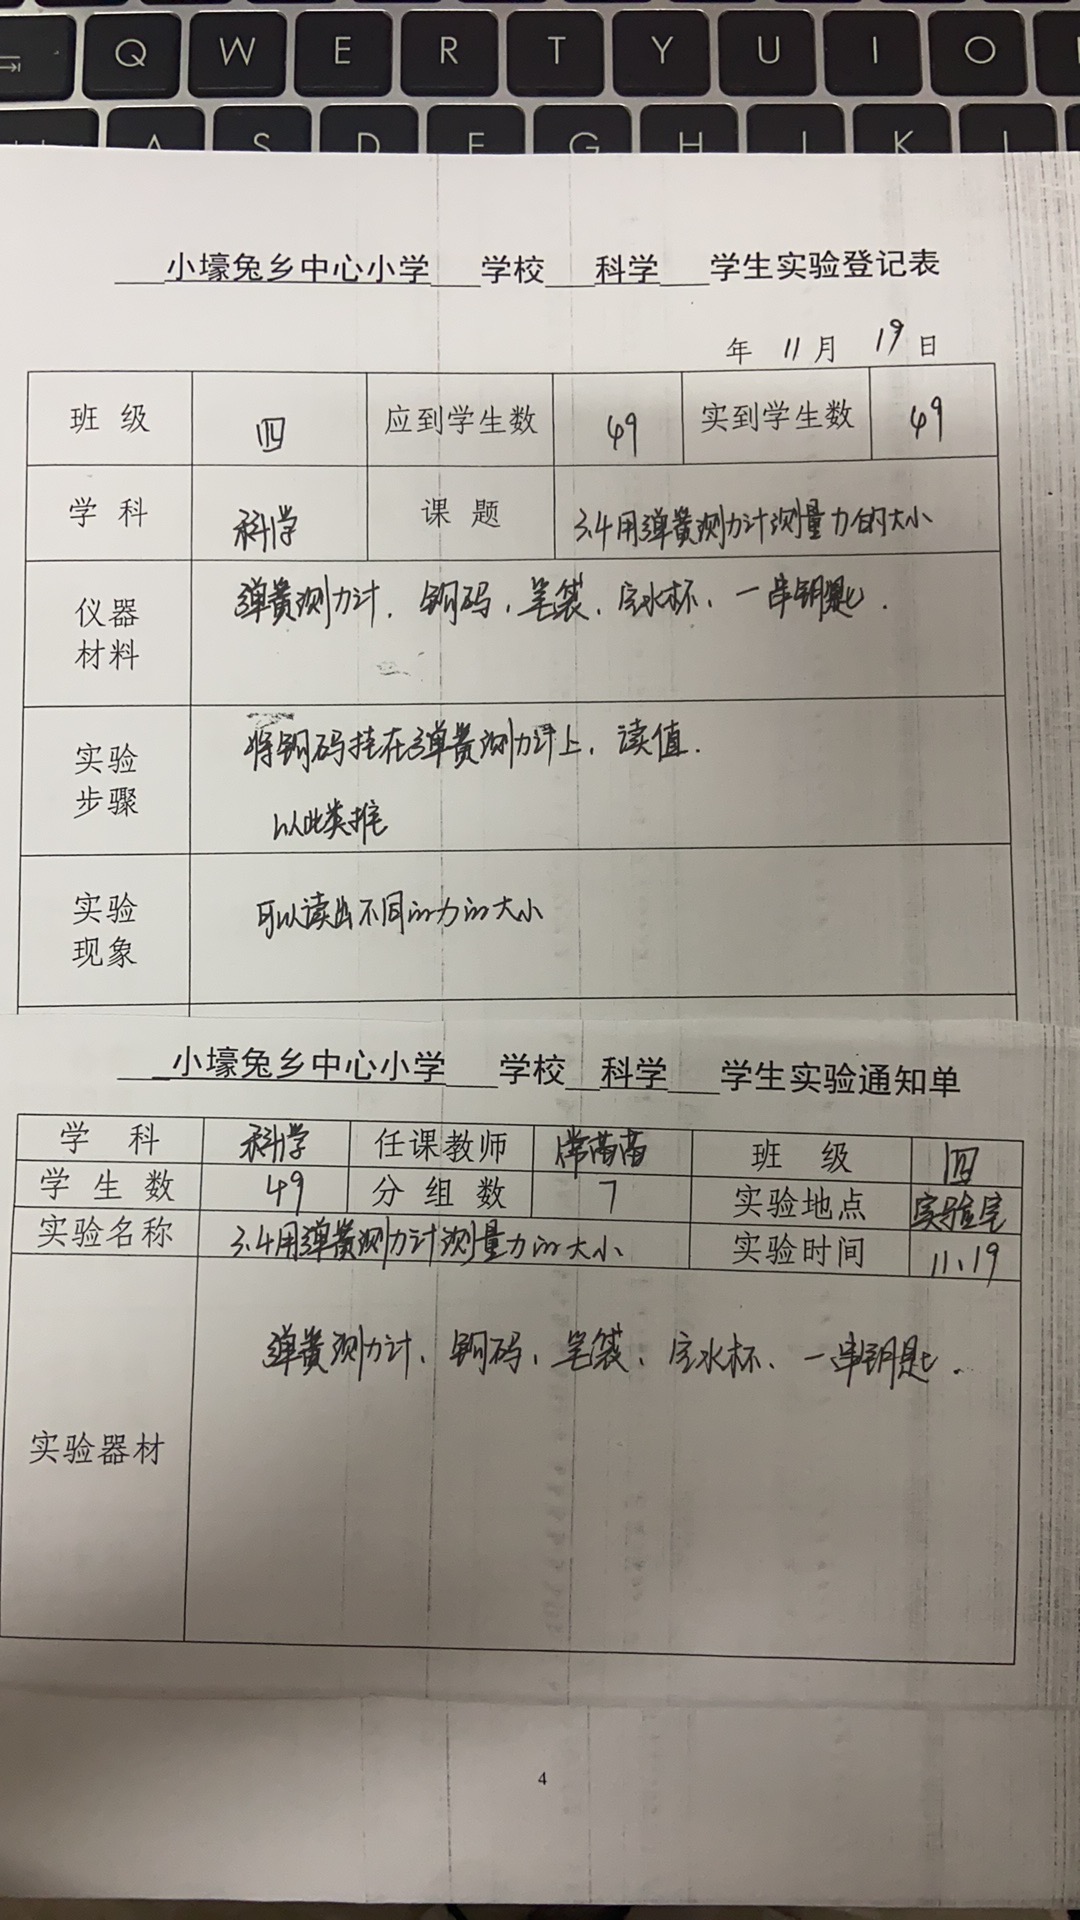 Q W E R T Y U I O
A S D F G H J K L
小壕兔乡中心小学 学校 科学 学生实验登记表
年 11月 19日
班级 四 应到学生数 49 实到学生数 49
学科 科学 课题 3.4用弹簧测力计测量力的大小
仪器材料 弹簧测力计、钩码、笔袋、空水杯、一串钥匙.
实验步骤 将钩码挂在弹簧测力计上,读值.
以此类推
实验现象 可以读出不同的力的大小
小壕兔乡中心小学 学校 科学 学生实验通知单
学科 科学 任课教师 常苗苗 班级 四
学生数 49 分组数 7 实验地点 实验室
实验名称 3.4用弹簧测力计测量力的大小 实验时间 11、19
实验器材 弹簧测力计、钩码、笔袋、空水杯、一串钥匙.
4